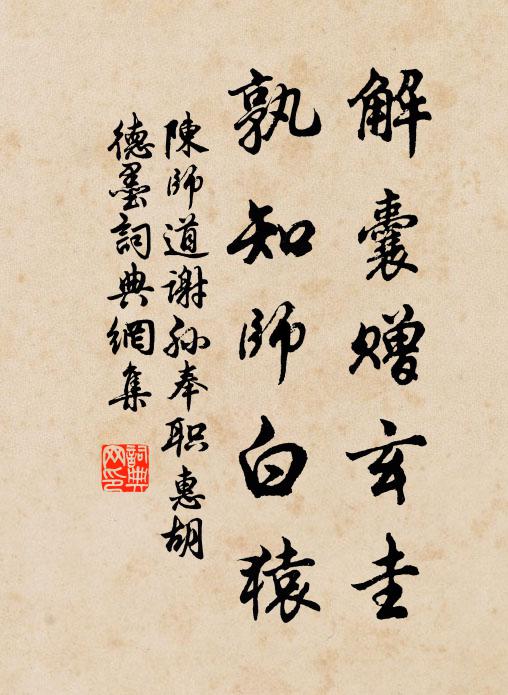 解囊赠玄圭
孰知师白猿
陳師道谢孙奉职惠胡
德墨詞典網集
詞典网印